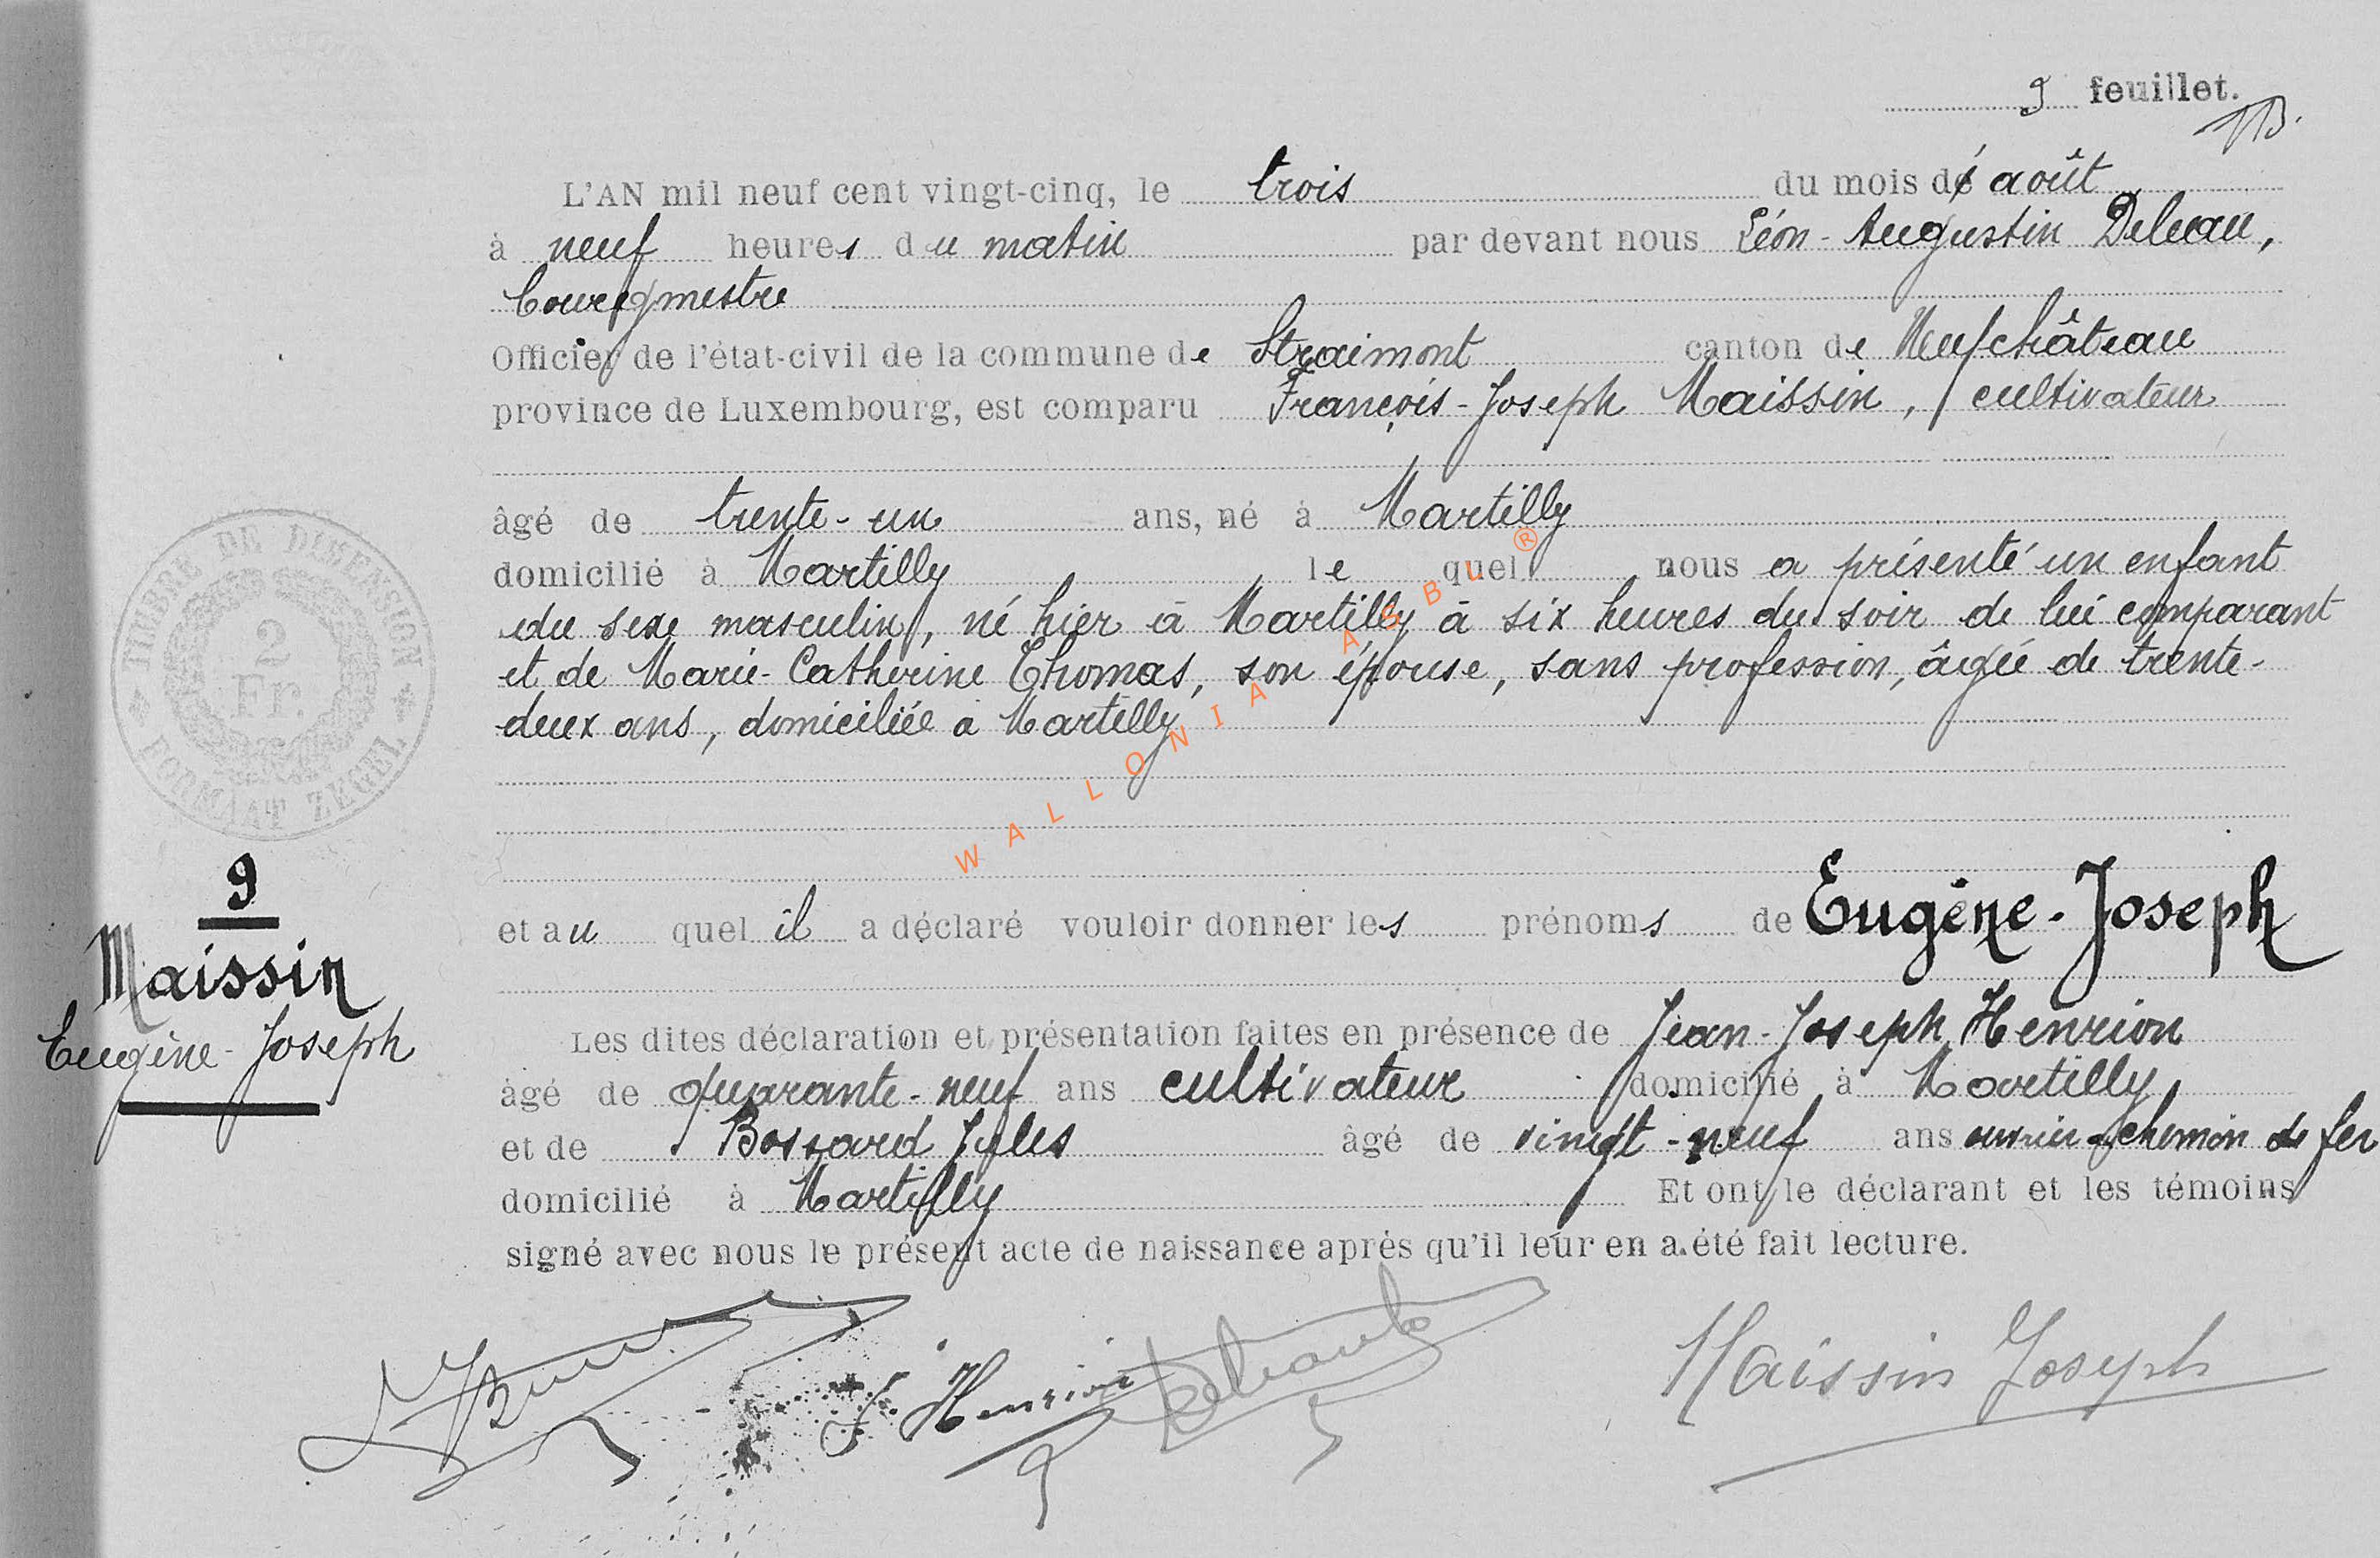 9 feuillet.
L'AN mil neuf cent vingt-cinq, le trois du mois d' août
à neuf heures du matin par devant nous Léon-Augustin Deleau,
bourgmestre
Officier de l'état-civil de la commune de Straimont canton de Neufchâteau
province de Luxembourg, est comparu François-Joseph Maissin, cultivateur
âgé de trente-un ans, né à Martilly
domicilié à Martilly lequel nous a présenté un enfant
du sexe masculin, né hier à Martilly à six heures du soir de lui comparant
et de Marie-Catherine Thomas, son épouse, sans profession, âgée de trente-
deux ans, domiciliée à Martilly
WALLONIA ASBL ®
TIMBRE DE DIMENSION
2
Fr.
FORMAAT ZEGEL
9
Maissin
Eugène-Joseph
et au quel il a déclaré vouloir donner les prénoms de Eugène-Joseph
Les dites déclaration et présentation faites en présence de Jean-Joseph Henrion
âgé de quarante-neuf ans cultivateur domicilié à Martilly
et de Bossard Jules âgé de vingt-neuf ans ouvrier chemin de fer
domicilié à Martilly Et ont le déclarant et les témoins
signé avec nous le présent acte de naissance après qu'il leur en a été fait lecture.
J. Henrion
Maissin Joseph